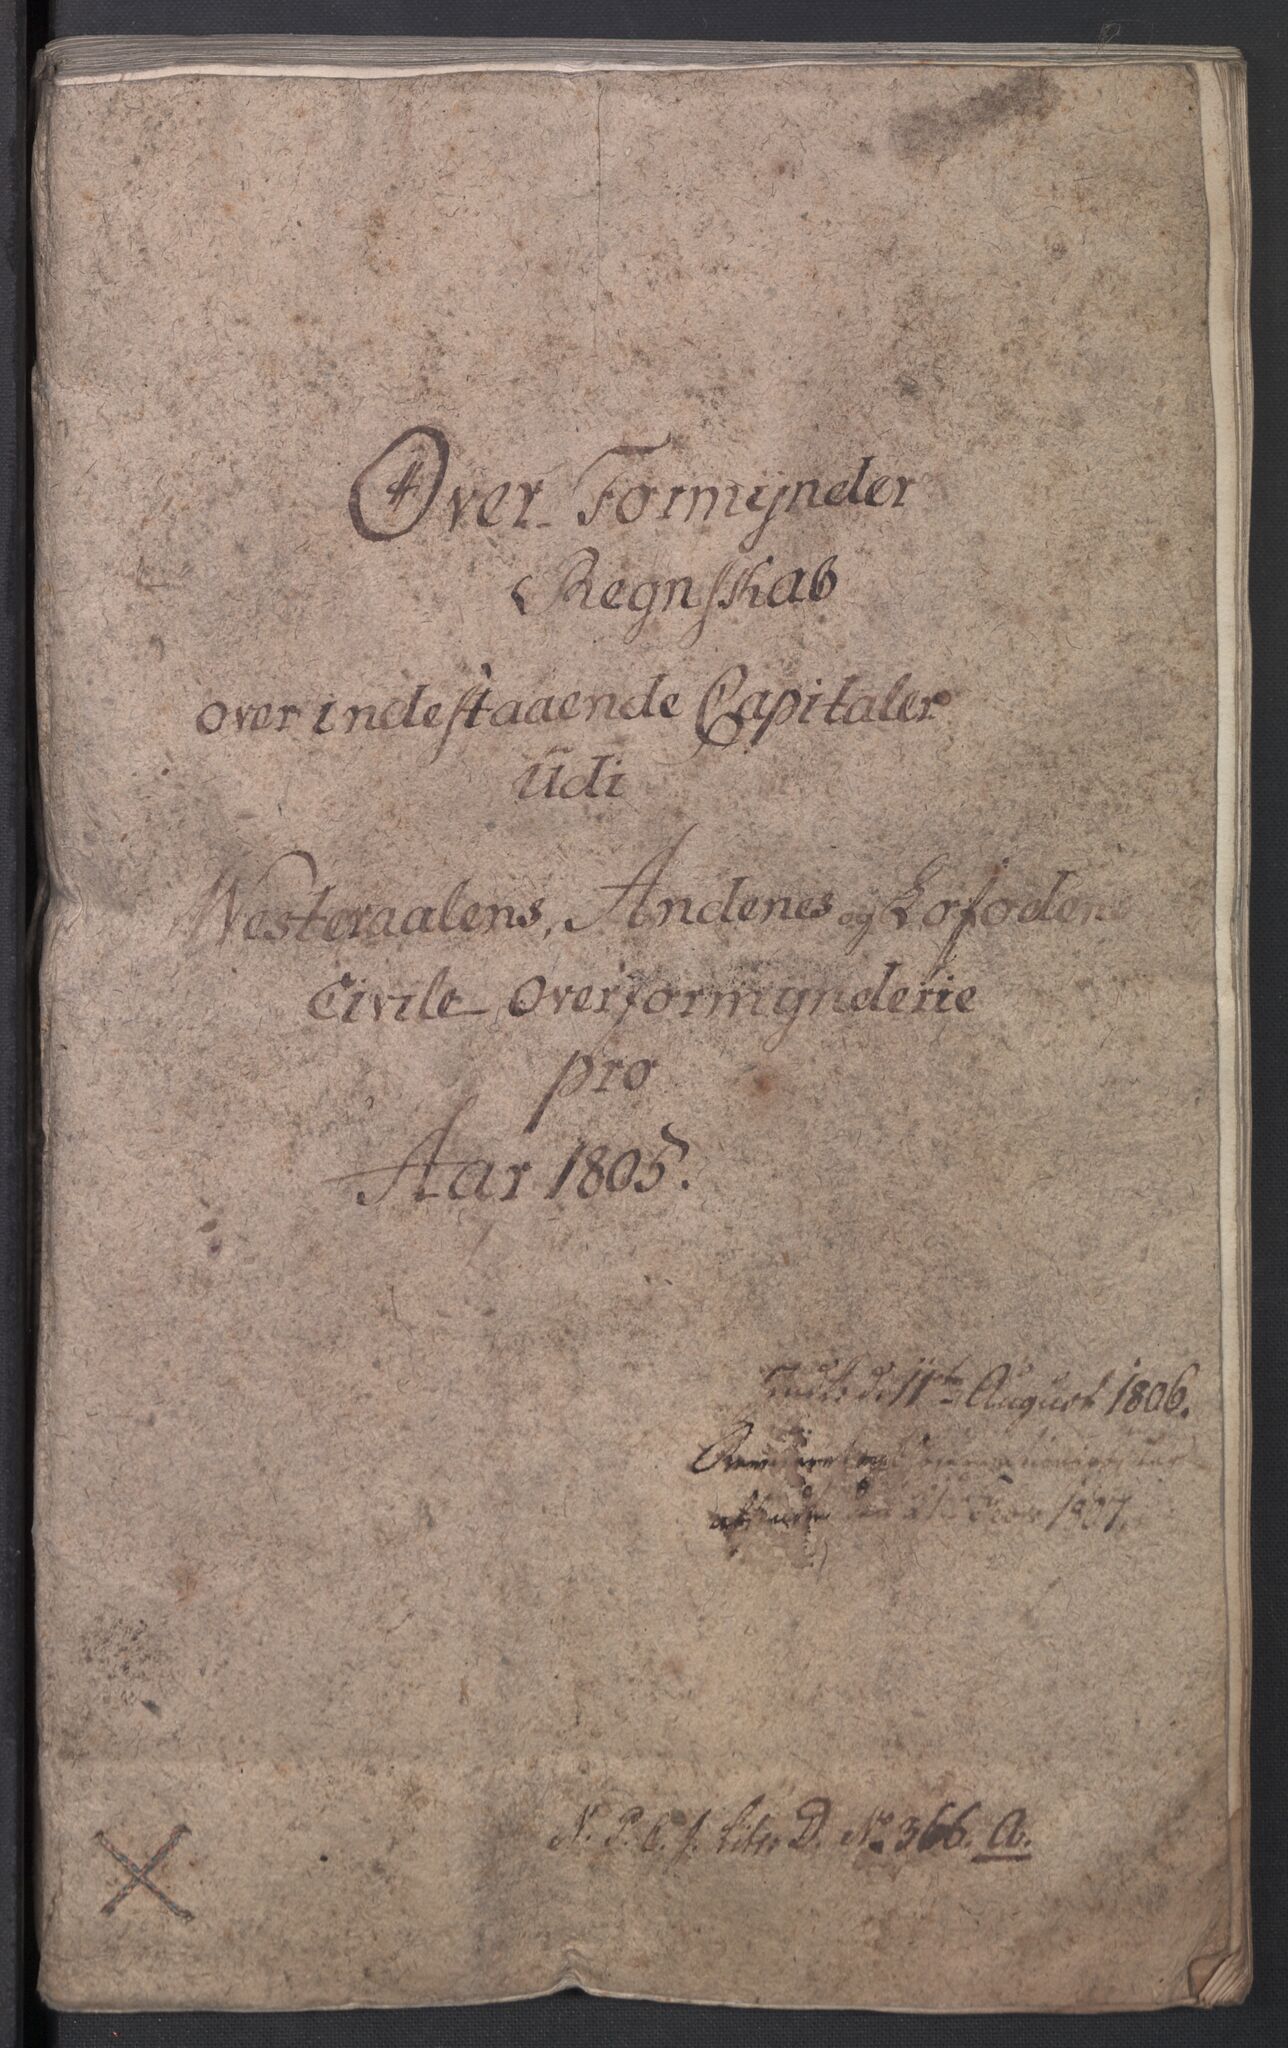 Over Formÿnder
Regnskab
over indestaaende Capitaler
Udi
Westeraalens, Andenes og Lofodens
Civile Overformÿnderie
pro
Aar 1805.
11te August 1806.
1807.
N. P. C. f. Liter D. No 366. A.